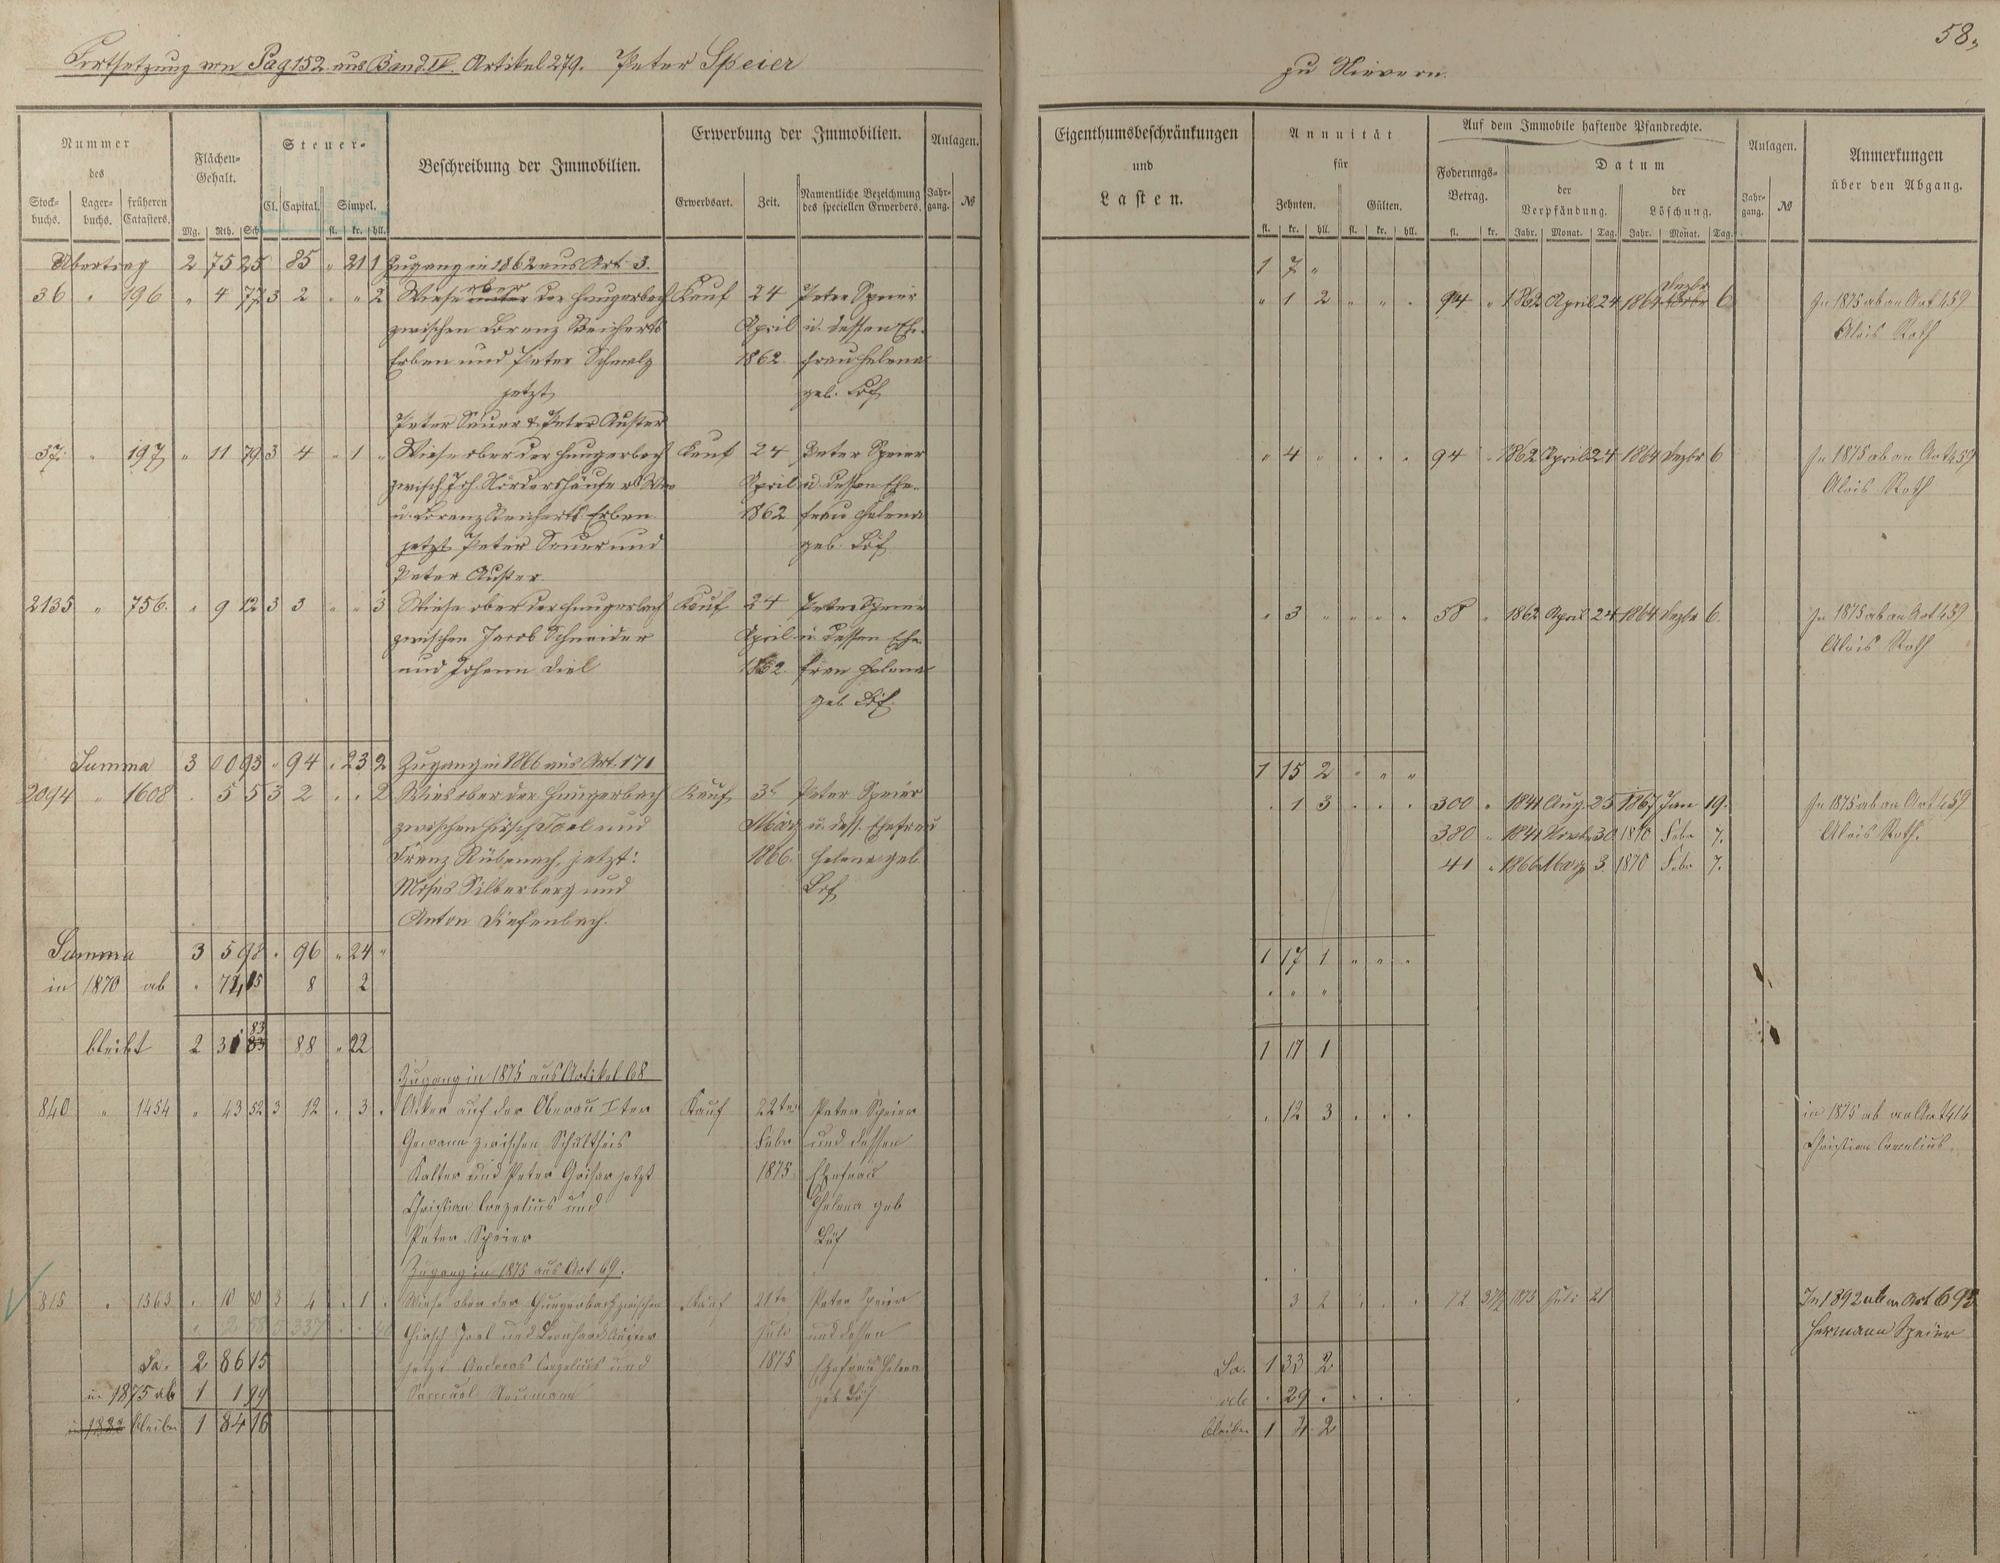 58.
Fortsetzung von Pag 152 aus Band IV. Artikel 279. Peter Speier
zu Nievern.
Nummer
des
Stock-
buchs.
Lager-
buchs.
früheren
Catasters.
Flächen-
Gehalt.
Mg. Rth. Sch.
Steuer-
Cl. Capital. Simpel.
fl. kr. hll.
Beschreibung der Immobilien.
Erwerbung der Immobilien.
Erwerbsart. Zeit. Namentliche Bezeichnung
des speciellen Erwerbers.
Anlagen.
Jahr-
gang. №
Eigenthumsbeschränkungen
und
Lasten.
Annuität
für
Zehnten. Gülten.
fl. kr. hll. fl. kr. hll.
Auf dem Immobile haftende Pfandrechte.
Foderungs-
Betrag.
fl. kr.
Datum
der
Verpfändung.
der
Löschung.
Jahr. Monat. Tag. Jahr. Monat. Tag.
Anlagen.
Jahr-
gang. №
Anmerkungen
über den Abgang.
Übertrag 2 75 25 85 " 21 1 Zugang in 1862 aus Art. 3. 1 7 "
36 " 196 " 4 77 3 2 " " 2 Wiese ober der Hungerbach Kauf 24 Peter Speier " 1 2 " " " 94 " 1862 April 24 1864 Dezbr 6 In 1875 ab an Art 459
zwischen Lorenz Weicherts April u. dessen Ehe- Alois Roth
Erben und Peter Schmalz 1862 frau Helena
jetzt geb. Löf
Peter Sauer & Peter Auster
37. " 197 " 11 79 3 4 " 1 " Wiese ober der Hungerbach Kauf 24 Peter Speier " 4 " " " " 94 " 1862 April 24 1864 Dezbr 6 In 1875 ab an Art 459
zwisch. Joh. Nördershäusers Wwe April u. dessen Ehe- Alois Roth
u. Lorenz Weicherts Erben 1862 frau Helena
jetzt Peter Sauer und geb. Löf
Peter Auster.
2135 " 756. " 9 12 3 3 " " 3 Wiese ober der Hungerbach Kauf 24 Peter Speier " 3 " " " " 58 " 1862 April 24 1864 Dezbr 6. In 1875 ab an Art 459
zwischen Jacob Schneider April u. dessen Ehe- Alois Roth
und Johann Diel 1862. frau Helena
geb. Löf.
Summa 3 00 93 " 94 " 23 2 Zugang in 1866 aus Art. 171 1 15 2 " " "
2094 " 1608 " 5 5 3 2 " " 2 Wies ober der Hungerbach Kauf 3t Peter Speier " 1 3 " " " 300 " 1841 Aug. 25 1867 Jan 19. In 1875 ab an Art 459
zwischen Hirsch Joel und März u. dess. Ehefrau 380 " 1841 Novbr 30 1870 Febr 7. Alois Roth.
Franz Rübenach, jetzt: 1866. Helena geb. 41 " 1866 März 3. 1870 Febr 7.
Moses Silberberg und Löf
Anton Diefenbach.
Summa 3 5 98 " 96 " 24 " 1 17 1 " " "
in 1870 ab " 74 15 8 2 " " "
bleibt 2 31 83 88 " 22 1 17 1
Zugang in 1875 aus Artikel 68
840 " 1454 " 43 52 3 12 " 3 " Acker auf der Oberau Iter Kauf 22ten Peter Speier " 12 3 " " " in 1875 ab an Art 414
Gewann zwischen Schultheis Febr und dessen Christian Corzelius.
Kalter und Peter Geiser jetzt 1875 Ehefrau
Christian Corzelius und Helena geb
Peter Speier Löf
Zugang in 1875 aus Art 69.
815 " 1363 " 10 80 3 4 " 1 " Wiese ober der Hungerbach zwischen Kauf 21te Peter Speier 3 2 " " " 72 1875 Juli 21 In 1892 ab an Art 693
Hirsch Joel und Leonhard Auster Juli und dessen Hermann Speier
Sa. 2 86 15 jetzt Andreas Corzelius und 1875 Ehefrau Helena Sa. 1 33 2
in 1875 ab 1 1 99 Samuel Neumann geb Löf ab " 29 " " " "
bleiben 1 84 16 bleiben 1 4 2